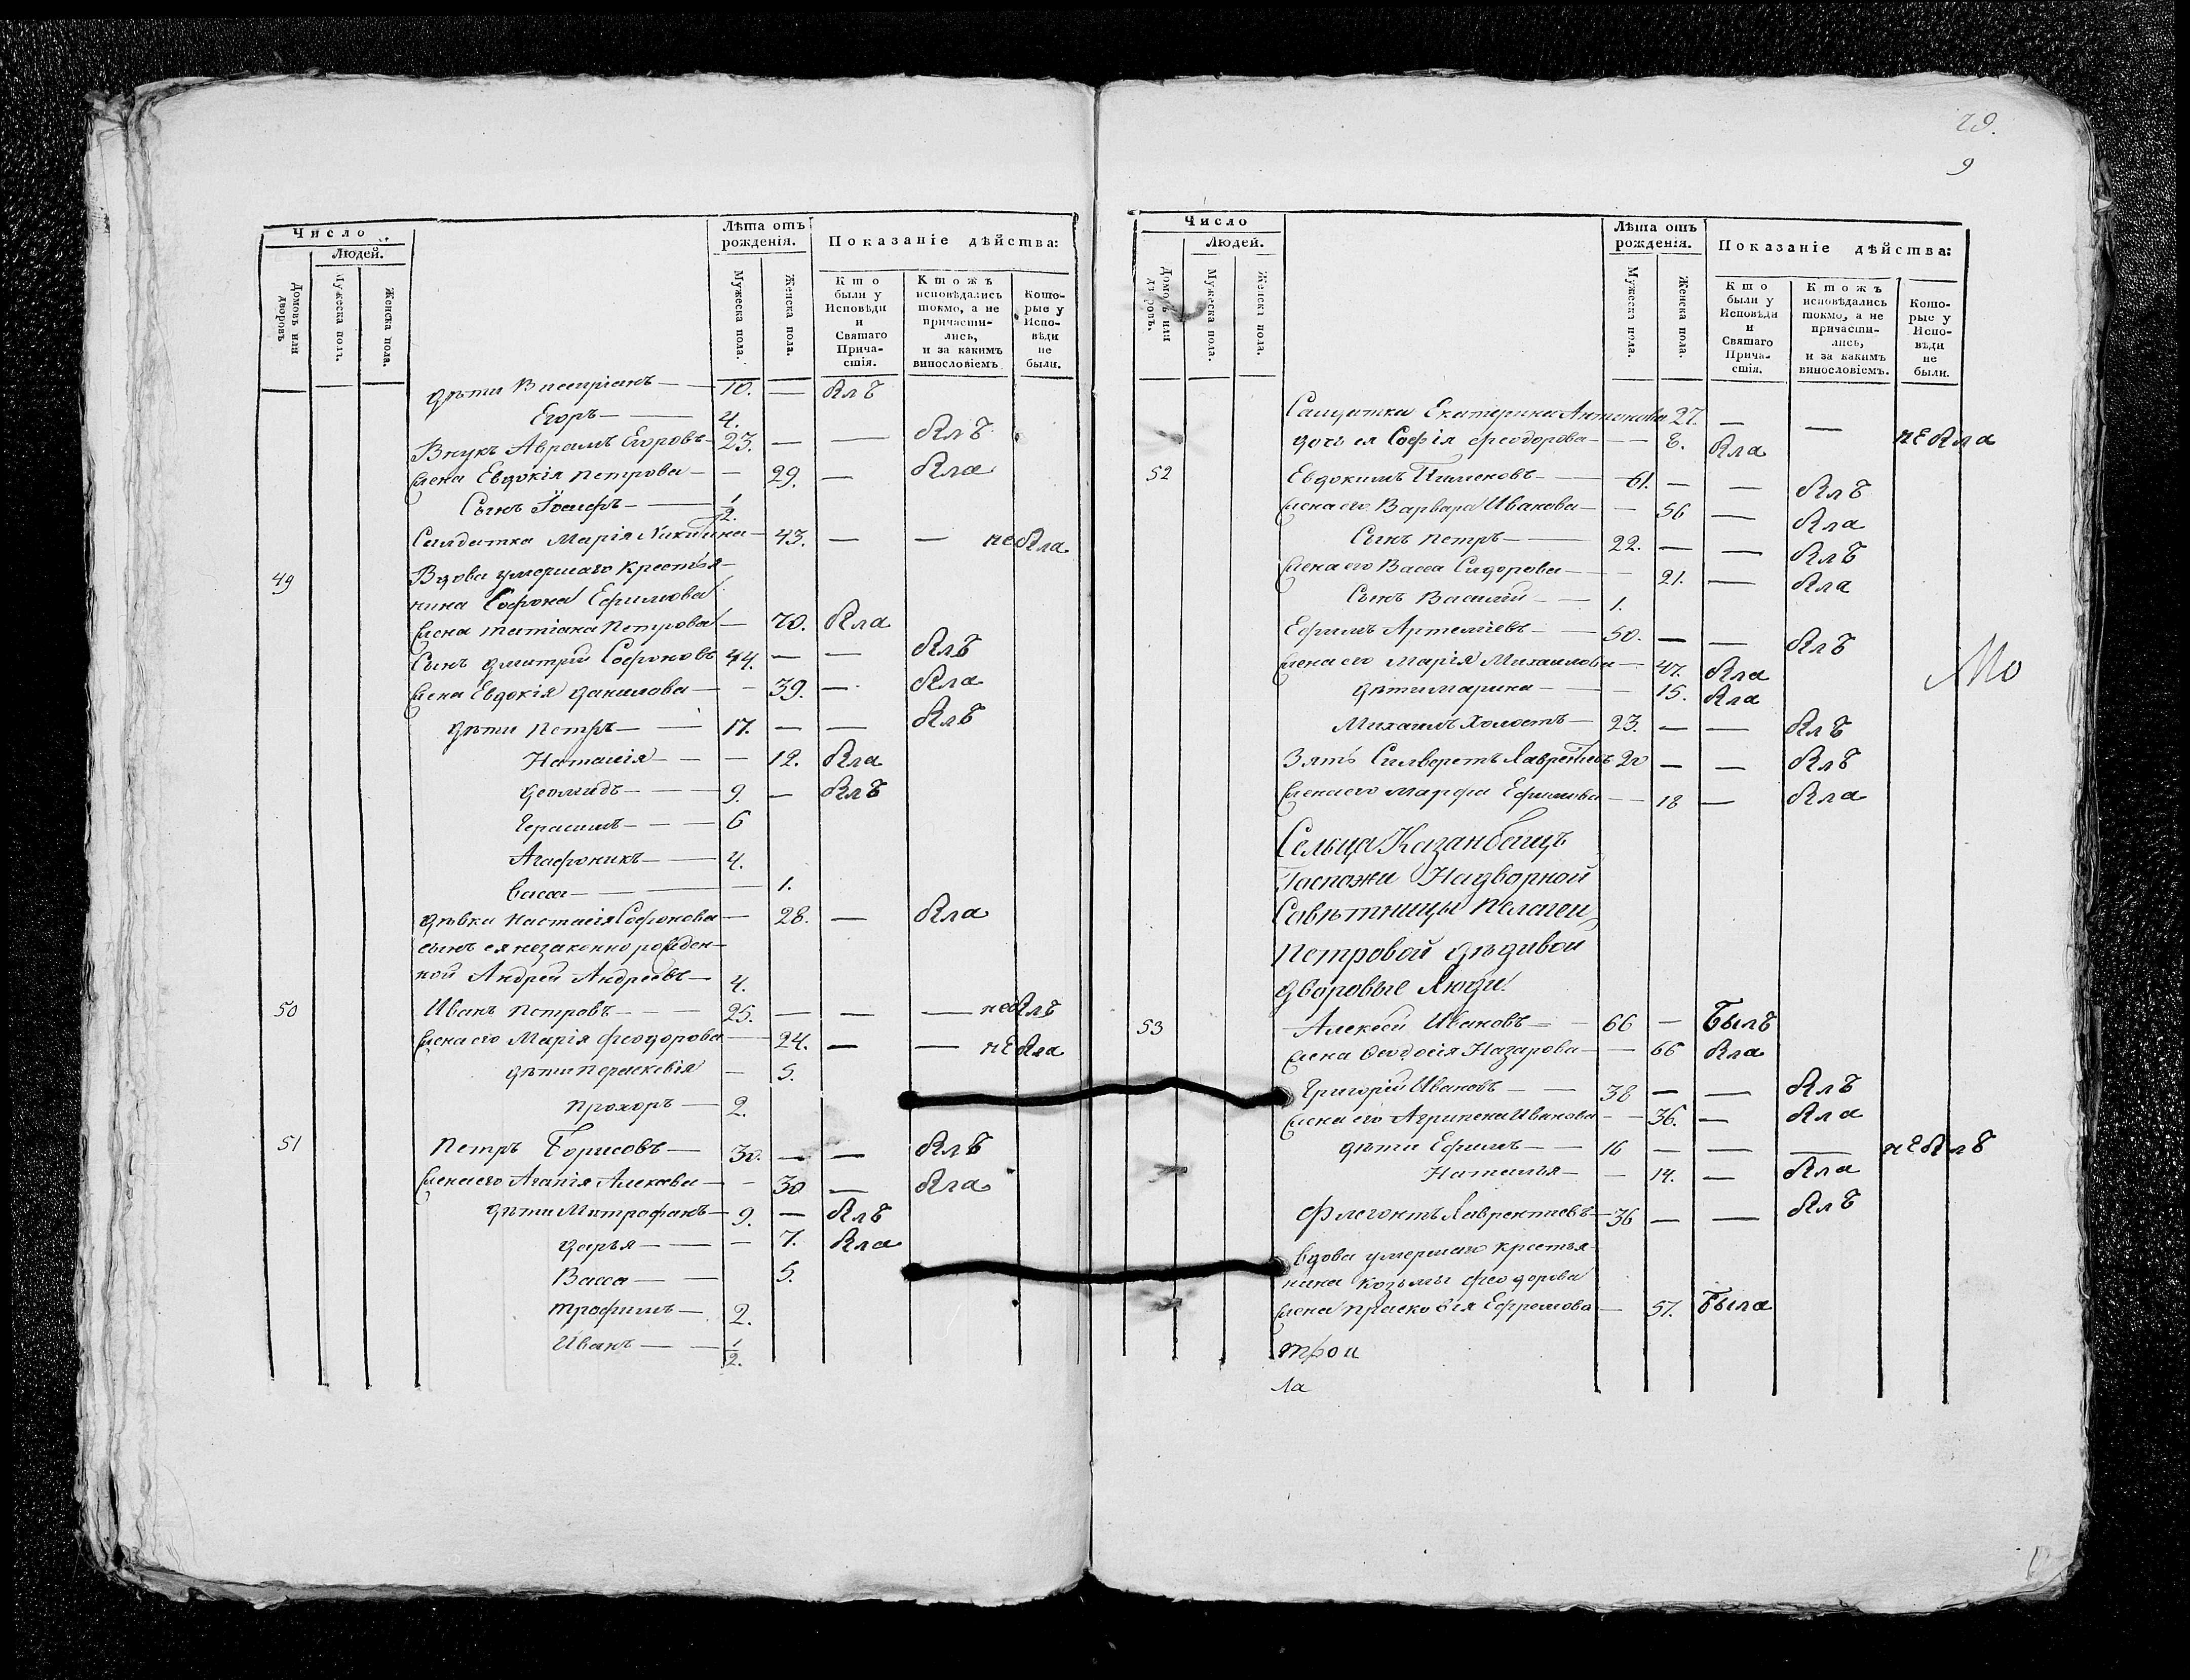 Число
Людей.
Домовъ или дворовъ
Мужеска пола.
Женска пола.
Лѣта отъ рожденія.
Мужеска пола.
Женска пола.
Показаніе дѣйства:
Кто были у Исповѣди и Святаго Прича- стія.
Ктожъ исповѣдались токмо, а не причасти- лись, и за какимъ винословіемъ
Кото- рые у Испо- вѣди не были.
дѣти — 10. — блъ
Егоръ — 4.
Внукъ Авраамъ Егоровъ — 23. — — блъ
жена Евдокія Петрова — — 29. — бла
Сынъ Іосифъ — 1/2.
Салдатка Марія Никитина — 43. — — не бла
49 Вдова умершаго крестья-
нина Софона Ефимова
жена татіана Петрова — 70. бла
Сынъ дмитрій Софоновъ 44. — — блъ
жена Евдокія данилова — — 39. — бла
дѣти Петръ — 17. — — блъ
Наталія — — 12. бла
демидъ — 9. — блъ
Герасимъ — 6
Агафоникъ — 4.
Васса — — 1.
дѣвка Настасія Софонова — 28. — бла
сынъ ея незаконно рожден-
ной Андрей Андреевъ — 4.
50 Иванъ Петровъ — 25. — — — не блъ
жена его Марія феодорова — 24. — — не бла
дѣти Парасковія — 5.
Прохоръ — 2.
51 Петръ Борисовъ — 30. — — блъ
жена его Агапія — — 30 — бла
дѣти Митрофанъ — 9. — блъ
дарья — — 7. бла
Васса — 5.
трофимъ — 2.
Иванъ — 1/2.
29.
9
Число
Людей.
Домовъ или дворовъ.
Мужеска пола.
Женска пола.
Лѣта отъ рожденія.
Мужеска пола.
Женска пола.
Показаніе дѣйства:
Кто были у Исповѣди и Святаго Прича- стія.
Ктожъ исповѣдались токмо, а не причасти- лись, и за какимъ винословіемъ.
Кото- рые у Испо- вѣди не были.
Салдатка Екатерина Антонова 27. — — не бла
дочь ея Софія феодорова — — 8. бла
52 Евдокимъ Пименовъ — 61. — — блъ
жена его Варвара Иванова — — 56 — бла
Сынъ Петръ — 22. — — блъ
жена его Васса Сидорова — — 21. — бла
Сынъ Василій — 1.
Ефимъ Артемьевъ — 50. — — блъ
жена его Марія Михаилова — 47. бла
дѣти марина — — 15. бла
Михаилъ Холостъ — 23. — — блъ
Зять Силверстъ Лаврентьевъ 20 — — блъ
жена его марфа Ефимова — 18 — бла
Мо
Сельца Казанбашъ
Госпожи Надворной
Савѣтницы Пелагеи
Петровой дѣдивой
дворовые Люди
53 Алексей Ивановъ — 66 — Былъ
жена Феодосія Назарова — — 66 бла
Григорій Ивановъ — 38 — — блъ
жена его Агрипена Иванова — — 36. — бла
дѣти Ефимъ — 16 — — — не блъ
Наталья — — 14. — бла
Флегонтъ Лаврентиевъ — 36 — — блъ
Вдова умершаго крестья-
нина Козьмы феодорова
жена Прасковія Ефремова — 57. Была
трои
Ла